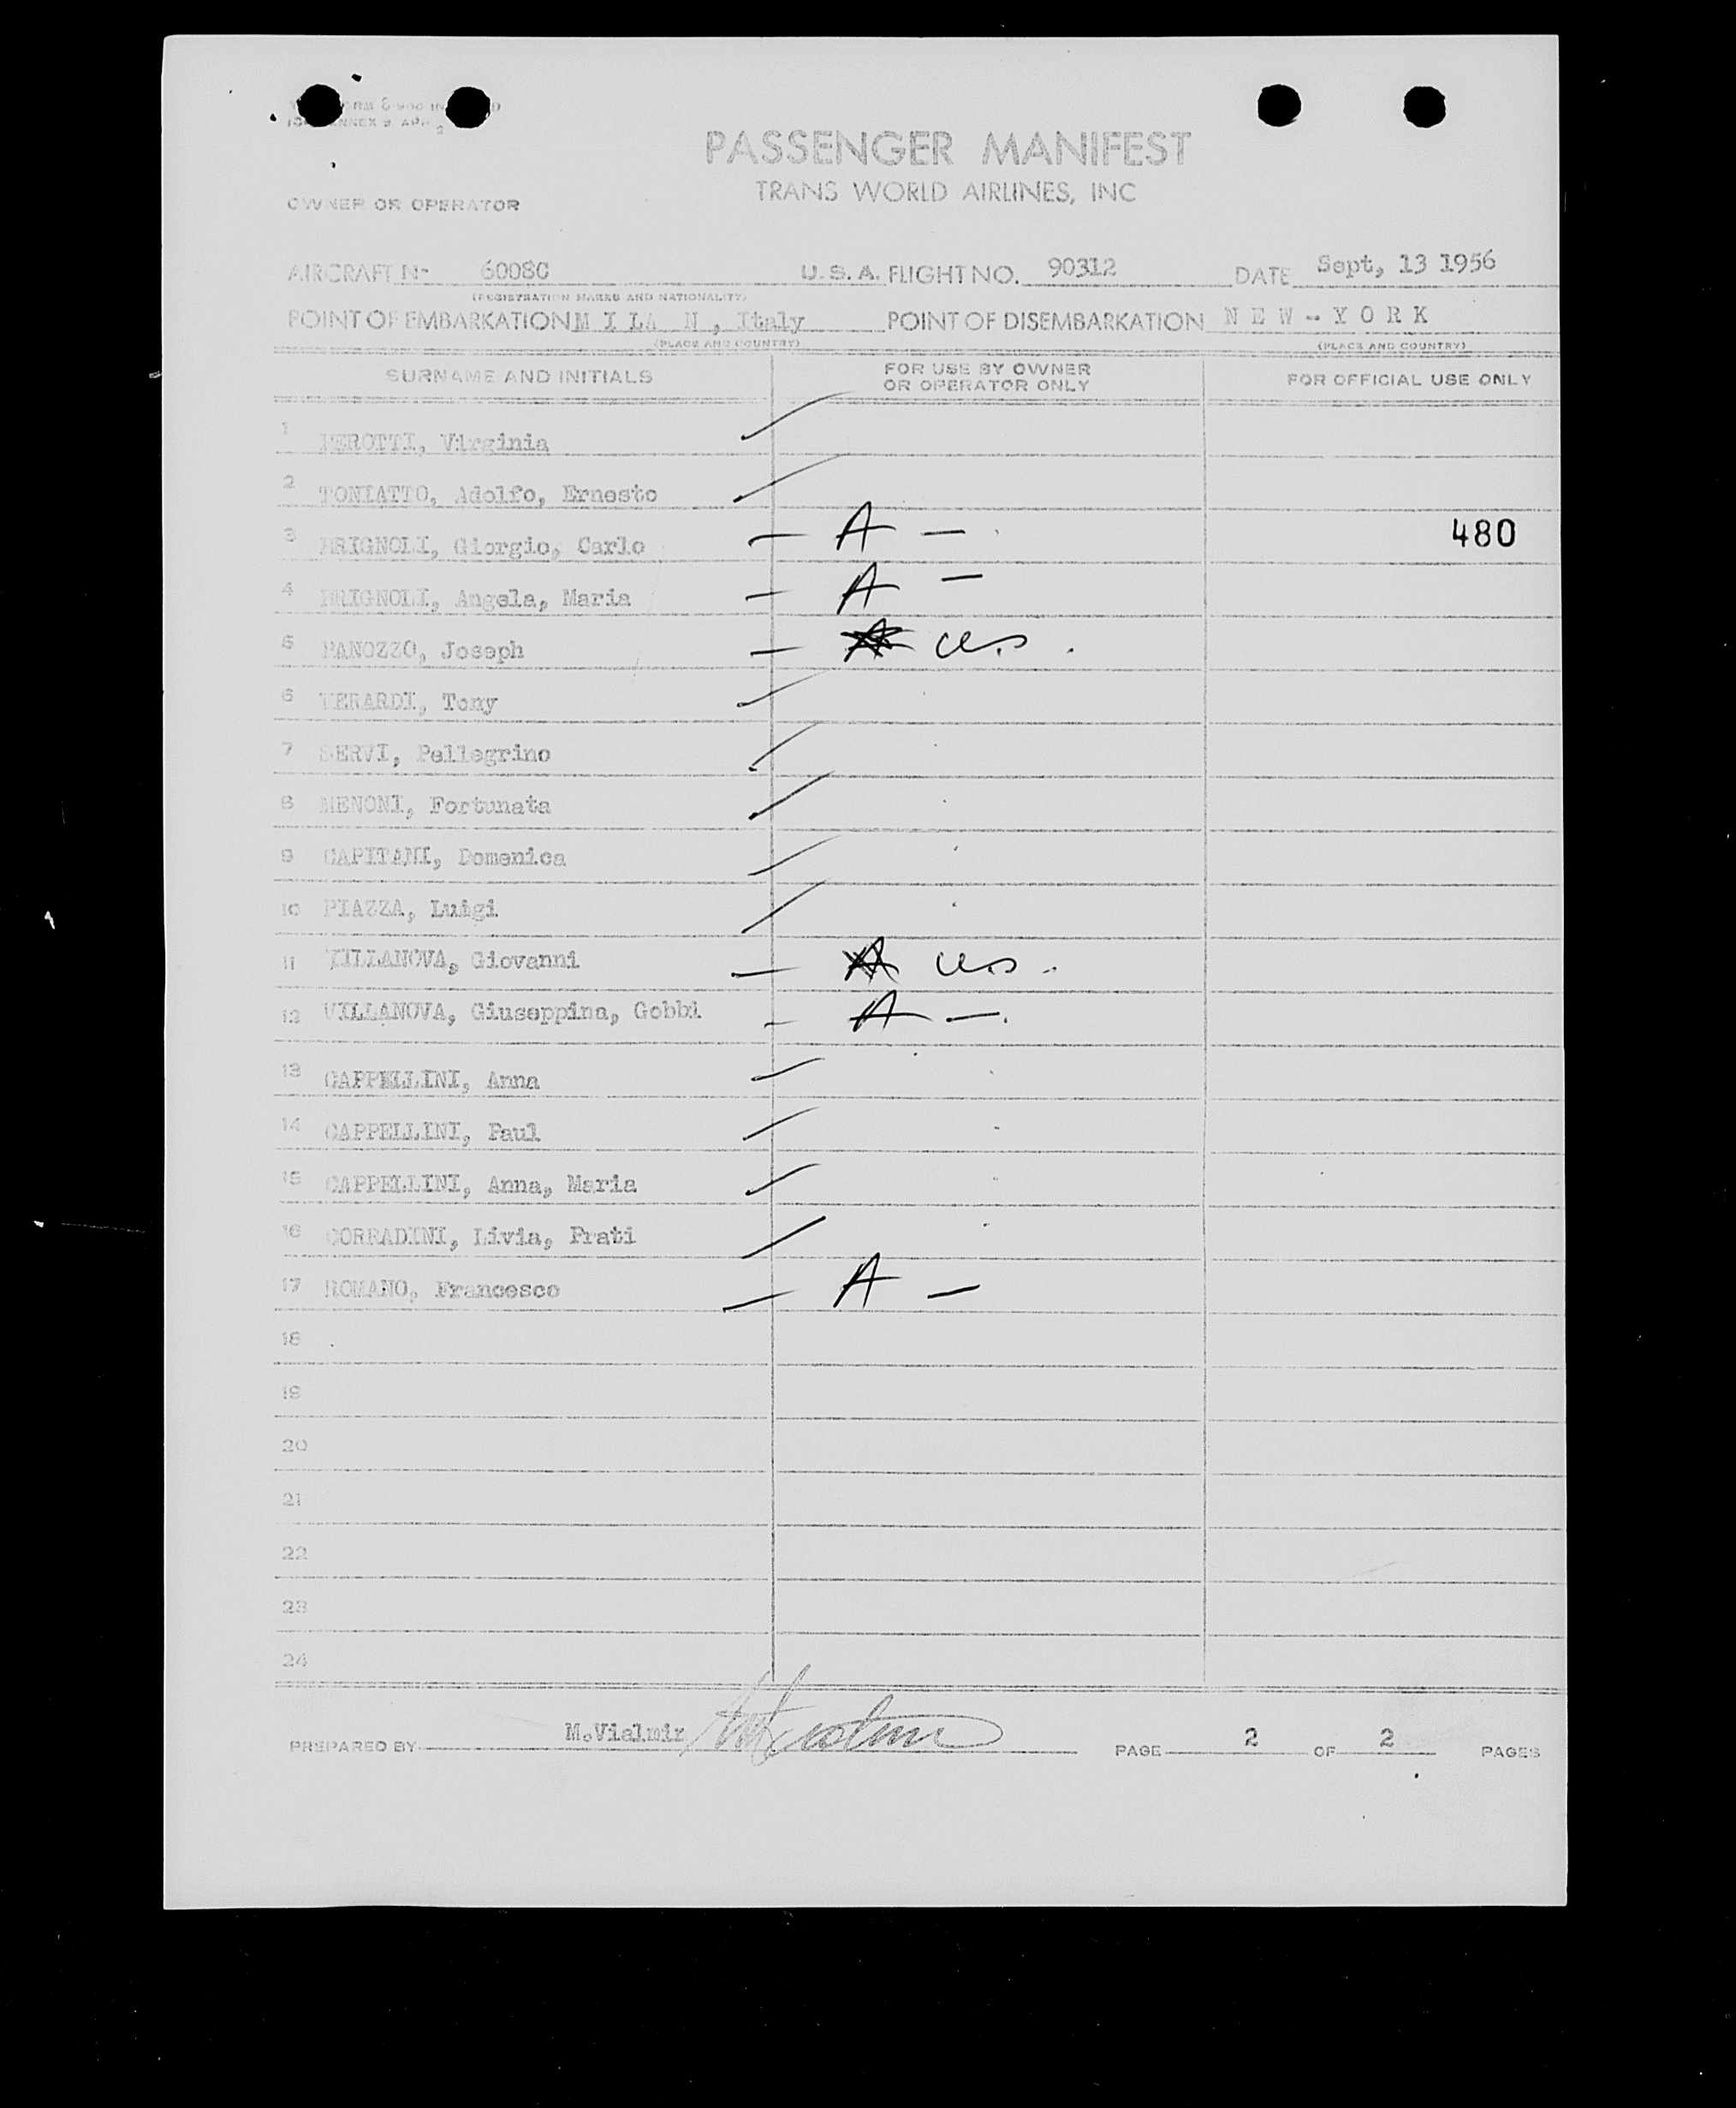 PASSENGER MANIFEST
TRANS WORLD AIRLINES, INC
OWNER OR OPERATOR
AIRCRAFT Nº 6008C U.S.A. FLIGHT NO. 90312 DATE Sept, 13 1956
(REGISTRATION MARKS AND NATIONALITY)
POINT OF EMBARKATION M I L A N , Italy POINT OF DISEMBARKATION N E W - Y O R K
(PLACE AND COUNTRY) (PLACE AND COUNTRY)
SURNAME AND INITIALS FOR USE BY OWNER OR OPERATOR ONLY FOR OFFICIAL USE ONLY
1 PEROTTI, Virginia
2 TONIATTO, Adolfo, Ernesto
3 BRIGNOLI, Giorgio, Carlo — A — 480
4 BRIGNOLI, Angela, Maria — A —
5 Joseph — U.S.
6 Tony
7 SERVI, Pellegrino
8 MENONI, Fortunata
9 CAPITANI, Domenica
10 PIAZZA, Luigi
11 VILLANOVA, Giovanni — U.S.
12 VILLANOVA, Giuseppina, Gobbi — A —
13 CAPPELLINI, Anna
14 CAPPELLINI, Paul
15 CAPPELLINI, Anna, Maria
16 CORRADINI, Livia, Prati
17 ROMANO, Francesco — A —
18
19
20
21
22
23
24
PREPARED BY M.Vialmir PAGE 2 OF 2 PAGES